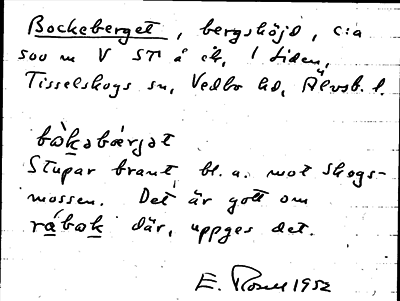 Bockeberget, bergshöjd, c:a
500 m V St å ek, l Liden,
Tisselskogs sn, Vedbo hd, Älvsb. l.
bòkabærjat
Stupar brant bl. a. mot Skogs-
mossen. Det är gott om
råbok där, uppges det.
E. 1952